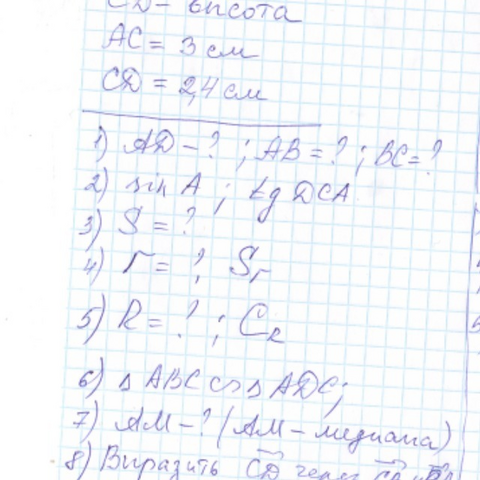 CD - высота
AC = 3 см
CD = 2,4 см
1) AD - ? ; AB = ? ; BC = ?
2) sin A ; tg DCA
3) S = ?
4) r = ? ; Sr
5) R = ? ; CR
6) Δ ABC ∾ Δ ADC;
7) AM - ? (AM - медиана)
8) Выразить CD через